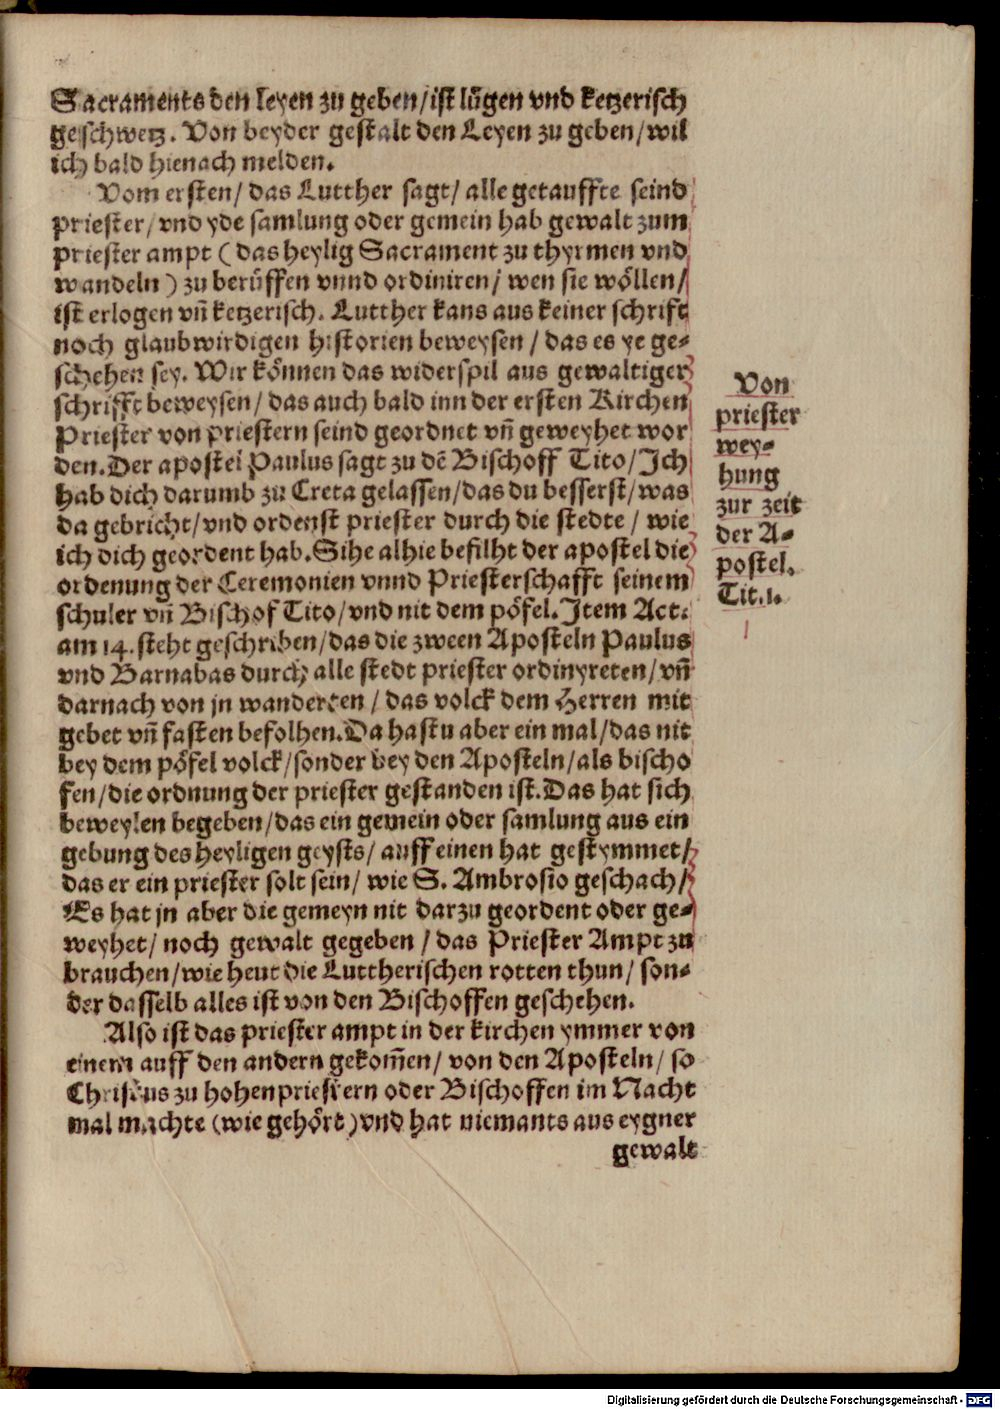 Sacraments den leyen zu geben/ist lu̇gen vnd ketzerisch
geschwetz. Von beyder gestalt den Leyen zu geben/wil
ich bald hienach melden.
Vom ersten/ das Lutther sagt/ alle getauffte seind
priester/vnd yde samlung oder gemein hab gewalt zum
priester ampt ( das heylig Sacrament zu thyrmen vnd
wandeln ) zu berüffen vnnd ordiniren/ wen sie wöllen/
ist erlogen vn̄ ketzerisch. Lutther kans aus keiner schrift
noch glaubwirdigen historien beweysen / das es ye ge-
schehen sey. Wir können das widerspil aus gewaltiger
schrifft beweysen/ das auch bald inn der ersten Kirchen
Priester von priestern seind geordnet vn̄ geweyhet wor
den. Der apostel Paulus sagt zu dē Bischoff Tito/Jch
hab dich darumb zu Creta gelassen/das du besserst/was
da gebricht/vnd ordenst priester durch die stedte / wie
ich dich geordent hab. Sihe alhie befilht der apostel die
ordenung der Ceremonien vnnd Priesterschafft seinem
schuler vn̄ Bischof Tito/vnd nit dem pöfel. Jtem Act.
am 14. steht geschriben/das die zween Aposteln Paulus
vnd Barnabas durch alle stedt priester ordinyreten/ vn̄
darnach von jn wanderten / das volck dem Herren mit
gebet vn̄ fasten befolhen. Da hastu aber ein mal/das nit
bey dem pöfel volck/sonder bey den Aposteln/als bischo
fen/die ordnung der priester gestanden ist. Das hat sich
beweylen begeben/das ein gemein oder samlung aus ein
gebung des heyligen geysts/ auff einen hat gestymmet/
das er ein priester solt sein/ wie S. Ambrosio geschach/
Es hat jn aber die gemeyn nit darzu geordent oder ge-
weyhet/ noch gewalt gegeben / das Priester Ampt zu
brauchen/wie heut die Luttherischen rotten thun/ son-
der dasselb alles ist von den Bischoffen geschehen.
Also ist das priester ampt in der kirchen ymmer von
einem auff den andern gekom̄en/ von den Aposteln/ so
Christus zu hohenpriestern oder Bischoffen im Nacht
mal machte (wie gehört) vnd hat niemants aus eygner
gewalt
Von
priester
wey-
hung
zur zeit
der A-
postel.
Tit.1.
Digitalisierung gefördert durch die Deutsche Forschungsgemeinschaft - DFG